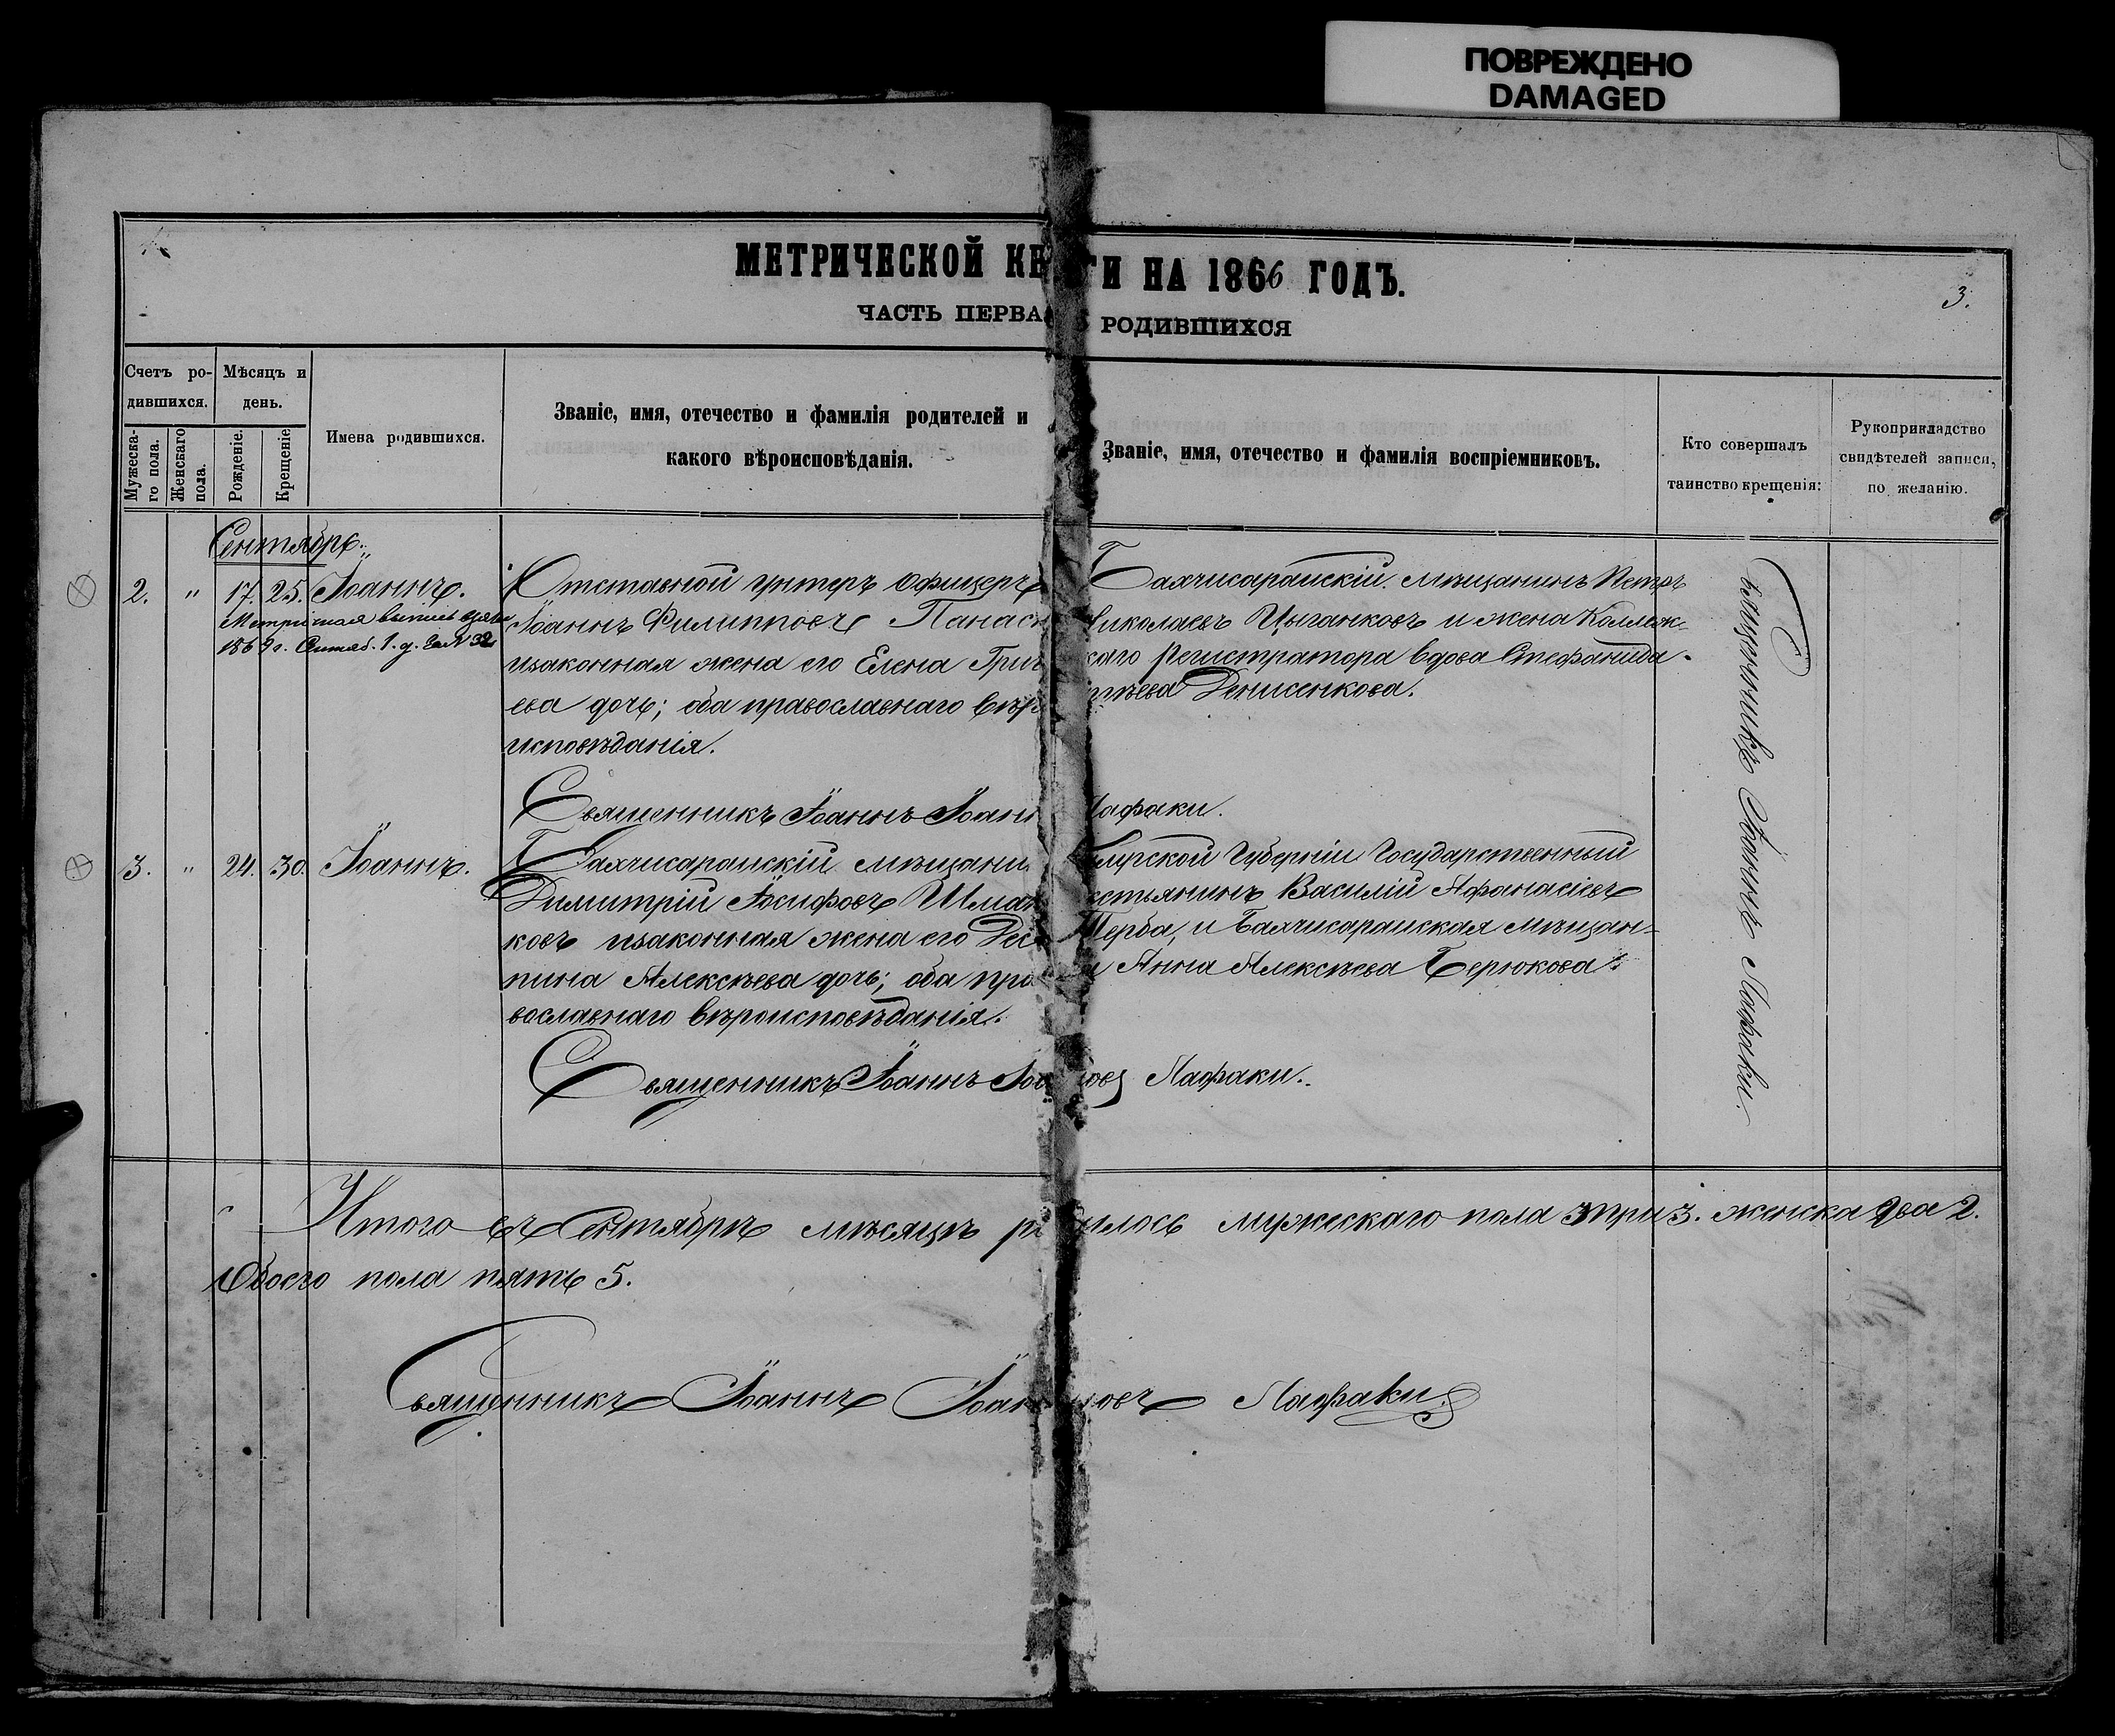 ПОВРЕЖДЕНО
DAMAGED
МЕТРИЧЕСКОЙ КН ГИ НА 1866 ГОДЪ.
3.
ЧАСТЬ ПЕРВА РОДИВШИХСЯ
Счетъ ро-
дившихся.
Мужеска-
го пола.
Женскаго
пола.
Мѣсяцъ и
день.
Рожденіе.
Крещеніе
Имена родившихся.
Званіе, имя, отечество и фамилія родителей и
какого вѣроисповѣданія.
Званіе, имя, отечество и фамилія воспріемниковъ.
Кто совершалъ
таинство крещенія:
Рукоприкладство
свидѣтелей записи,
по желанію.
Сентябрь.
2. " 17. 25. Іоаннъ.
1869 г. Сентяб. 1. д. за № 32
Отставной унтеръ офицеръ
Іоаннъ Филипповъ Панас
изаконная жена его Елена Григ
ева дочь; оба православнаго вѣр
исповѣданія.
Бахчисарайскій мѣщанинъ Петръ
Николаевъ Цыганковъ и жена Коллеж-
каго Регистратора вдова Стефанида
Денисенкова.
Священникъ Іоаннъ Іоанн Лафаки.
3. " 24. 30. Іоаннъ.
Бахчисарайскій мѣщани
Димитрій Іосифовъ Шма
ковъ изаконная жена его Дес
пина Алексѣева дочь; оба пра
вославнаго вѣроисповѣданія.
Губерніи Государственный
стьянинъ Василій Афанасіевъ
Щерба, и Бахчисарайская мѣщан-
Анна Алексѣева Берюкова.
Священникъ Іоаннъ Іоа новъ Лафаки.
Священникъ Іоаннъ Лафаки.
Итого въ Сентябрѣ мѣсяцѣ р илось мужескаго пола три 3. женска два 2.
Обоего пола пять 5.
Священникъ Іоаннъ Іоан новъ Лафаки